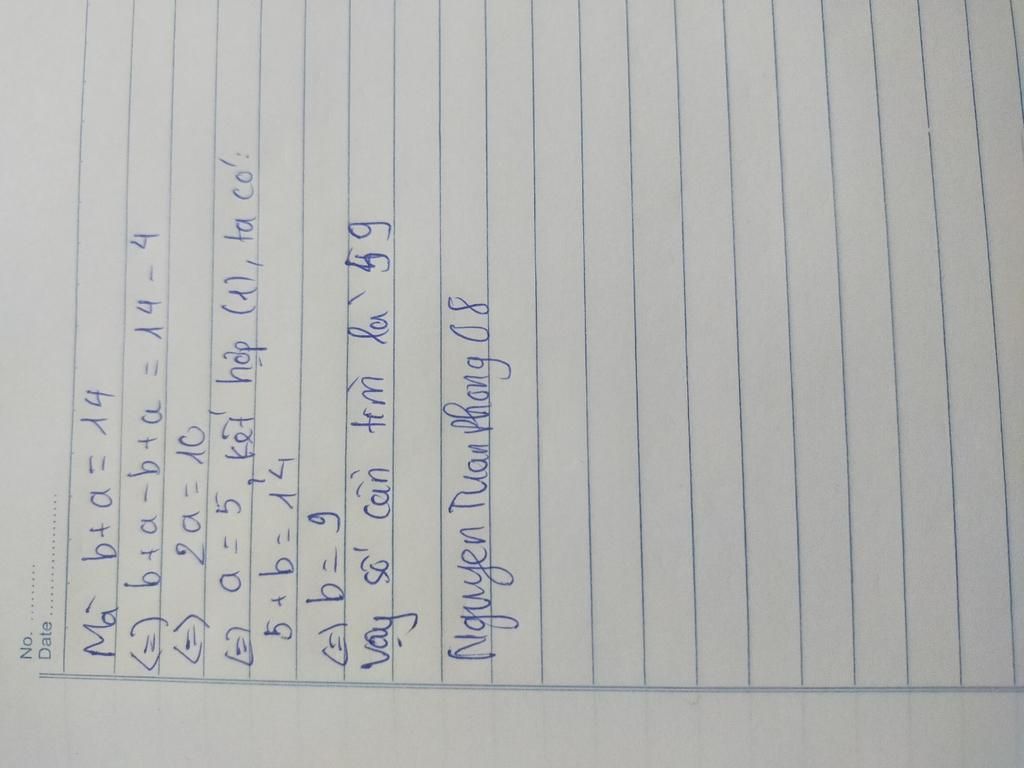 No. ..........
Date ......................
Mà b + a = 14
(=) b + a - b + a = 14 - 4
(=) 2a = 10
(=) a = 5, kết hợp (1), ta có:
5 + b = 14
(=) b = 9
Vậy số cần tìm là 59
Nguyen Tuan Phong 08